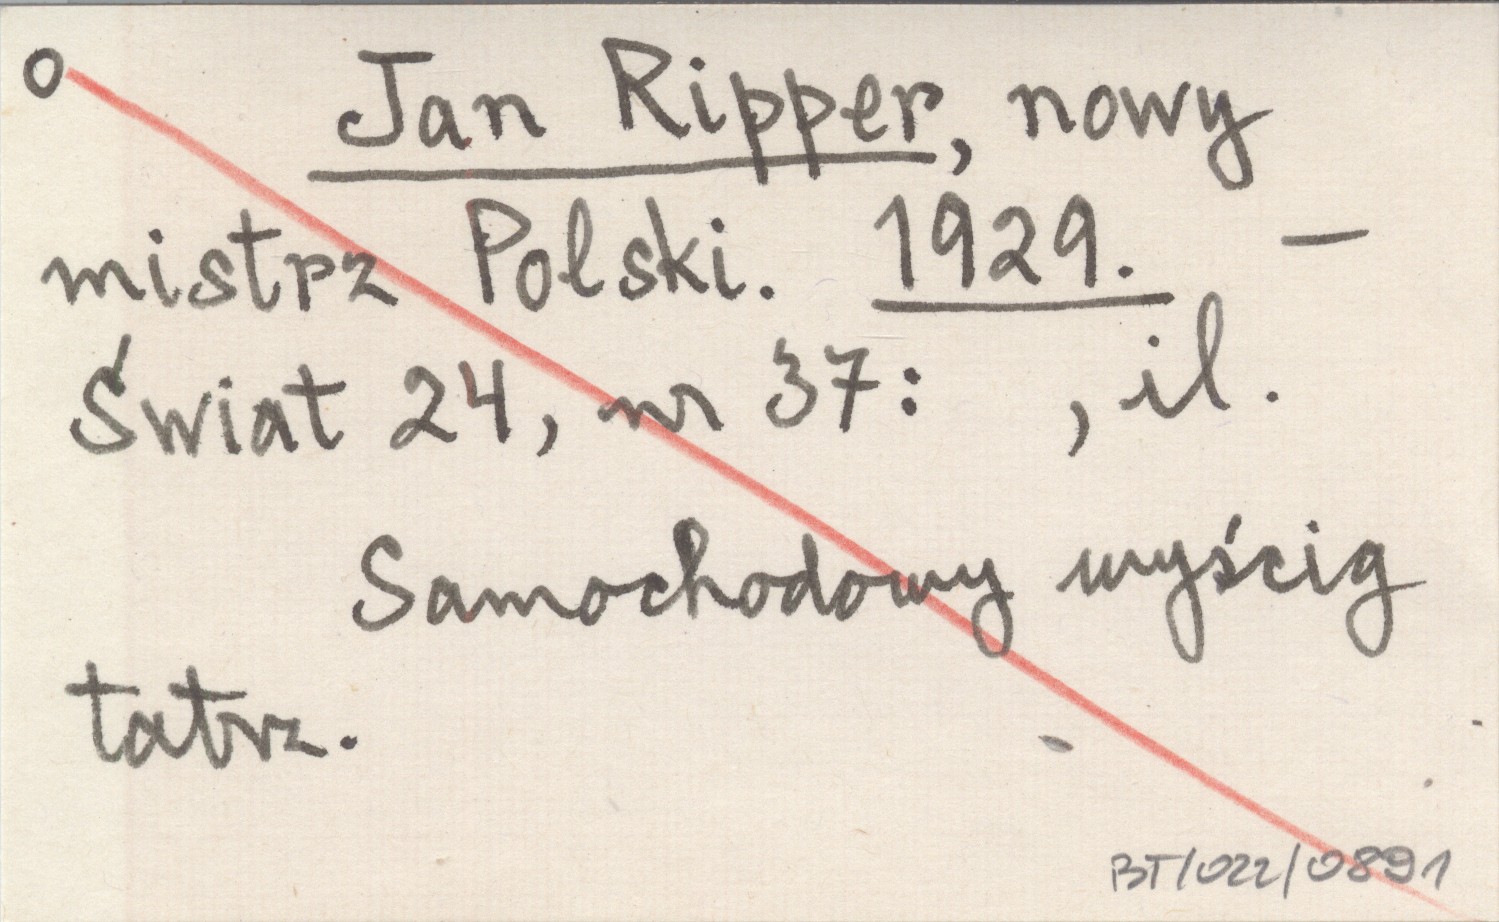 o Jan Ripper, nowy
mistrz Polski. 1929. —
Świat 24, nr 37: , il.
Samochodowy wyścig
tatrz.
BT/022/0891